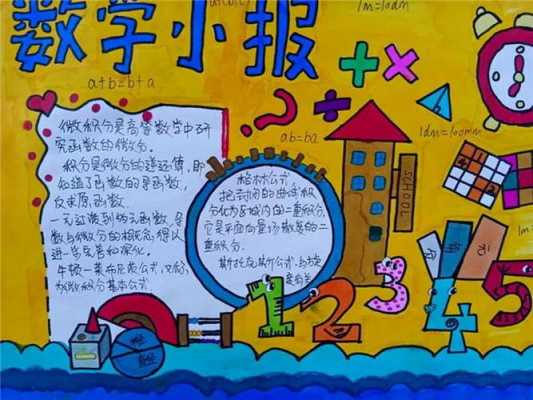 数学小报
1m=10dm
a+b=b+a
ab=ba
1dm=100mm
SCHOOL
微积分是高等数学中研
究函数的微分。
积分是微分的逆运算,即
知道了函数的导函数,
反求原函数.
一元
函数
数与微分的概念得以
进一步完善和深化。
牛顿—莱布尼茨公式,又称
为微积分基本公式
格林公式,
把封闭的曲线积
分化为区域内的二重积分,
它是平面向量场散度的二
重积分.
斯托克斯公式,与旋
度有关
1 2 3 4 5
1m=